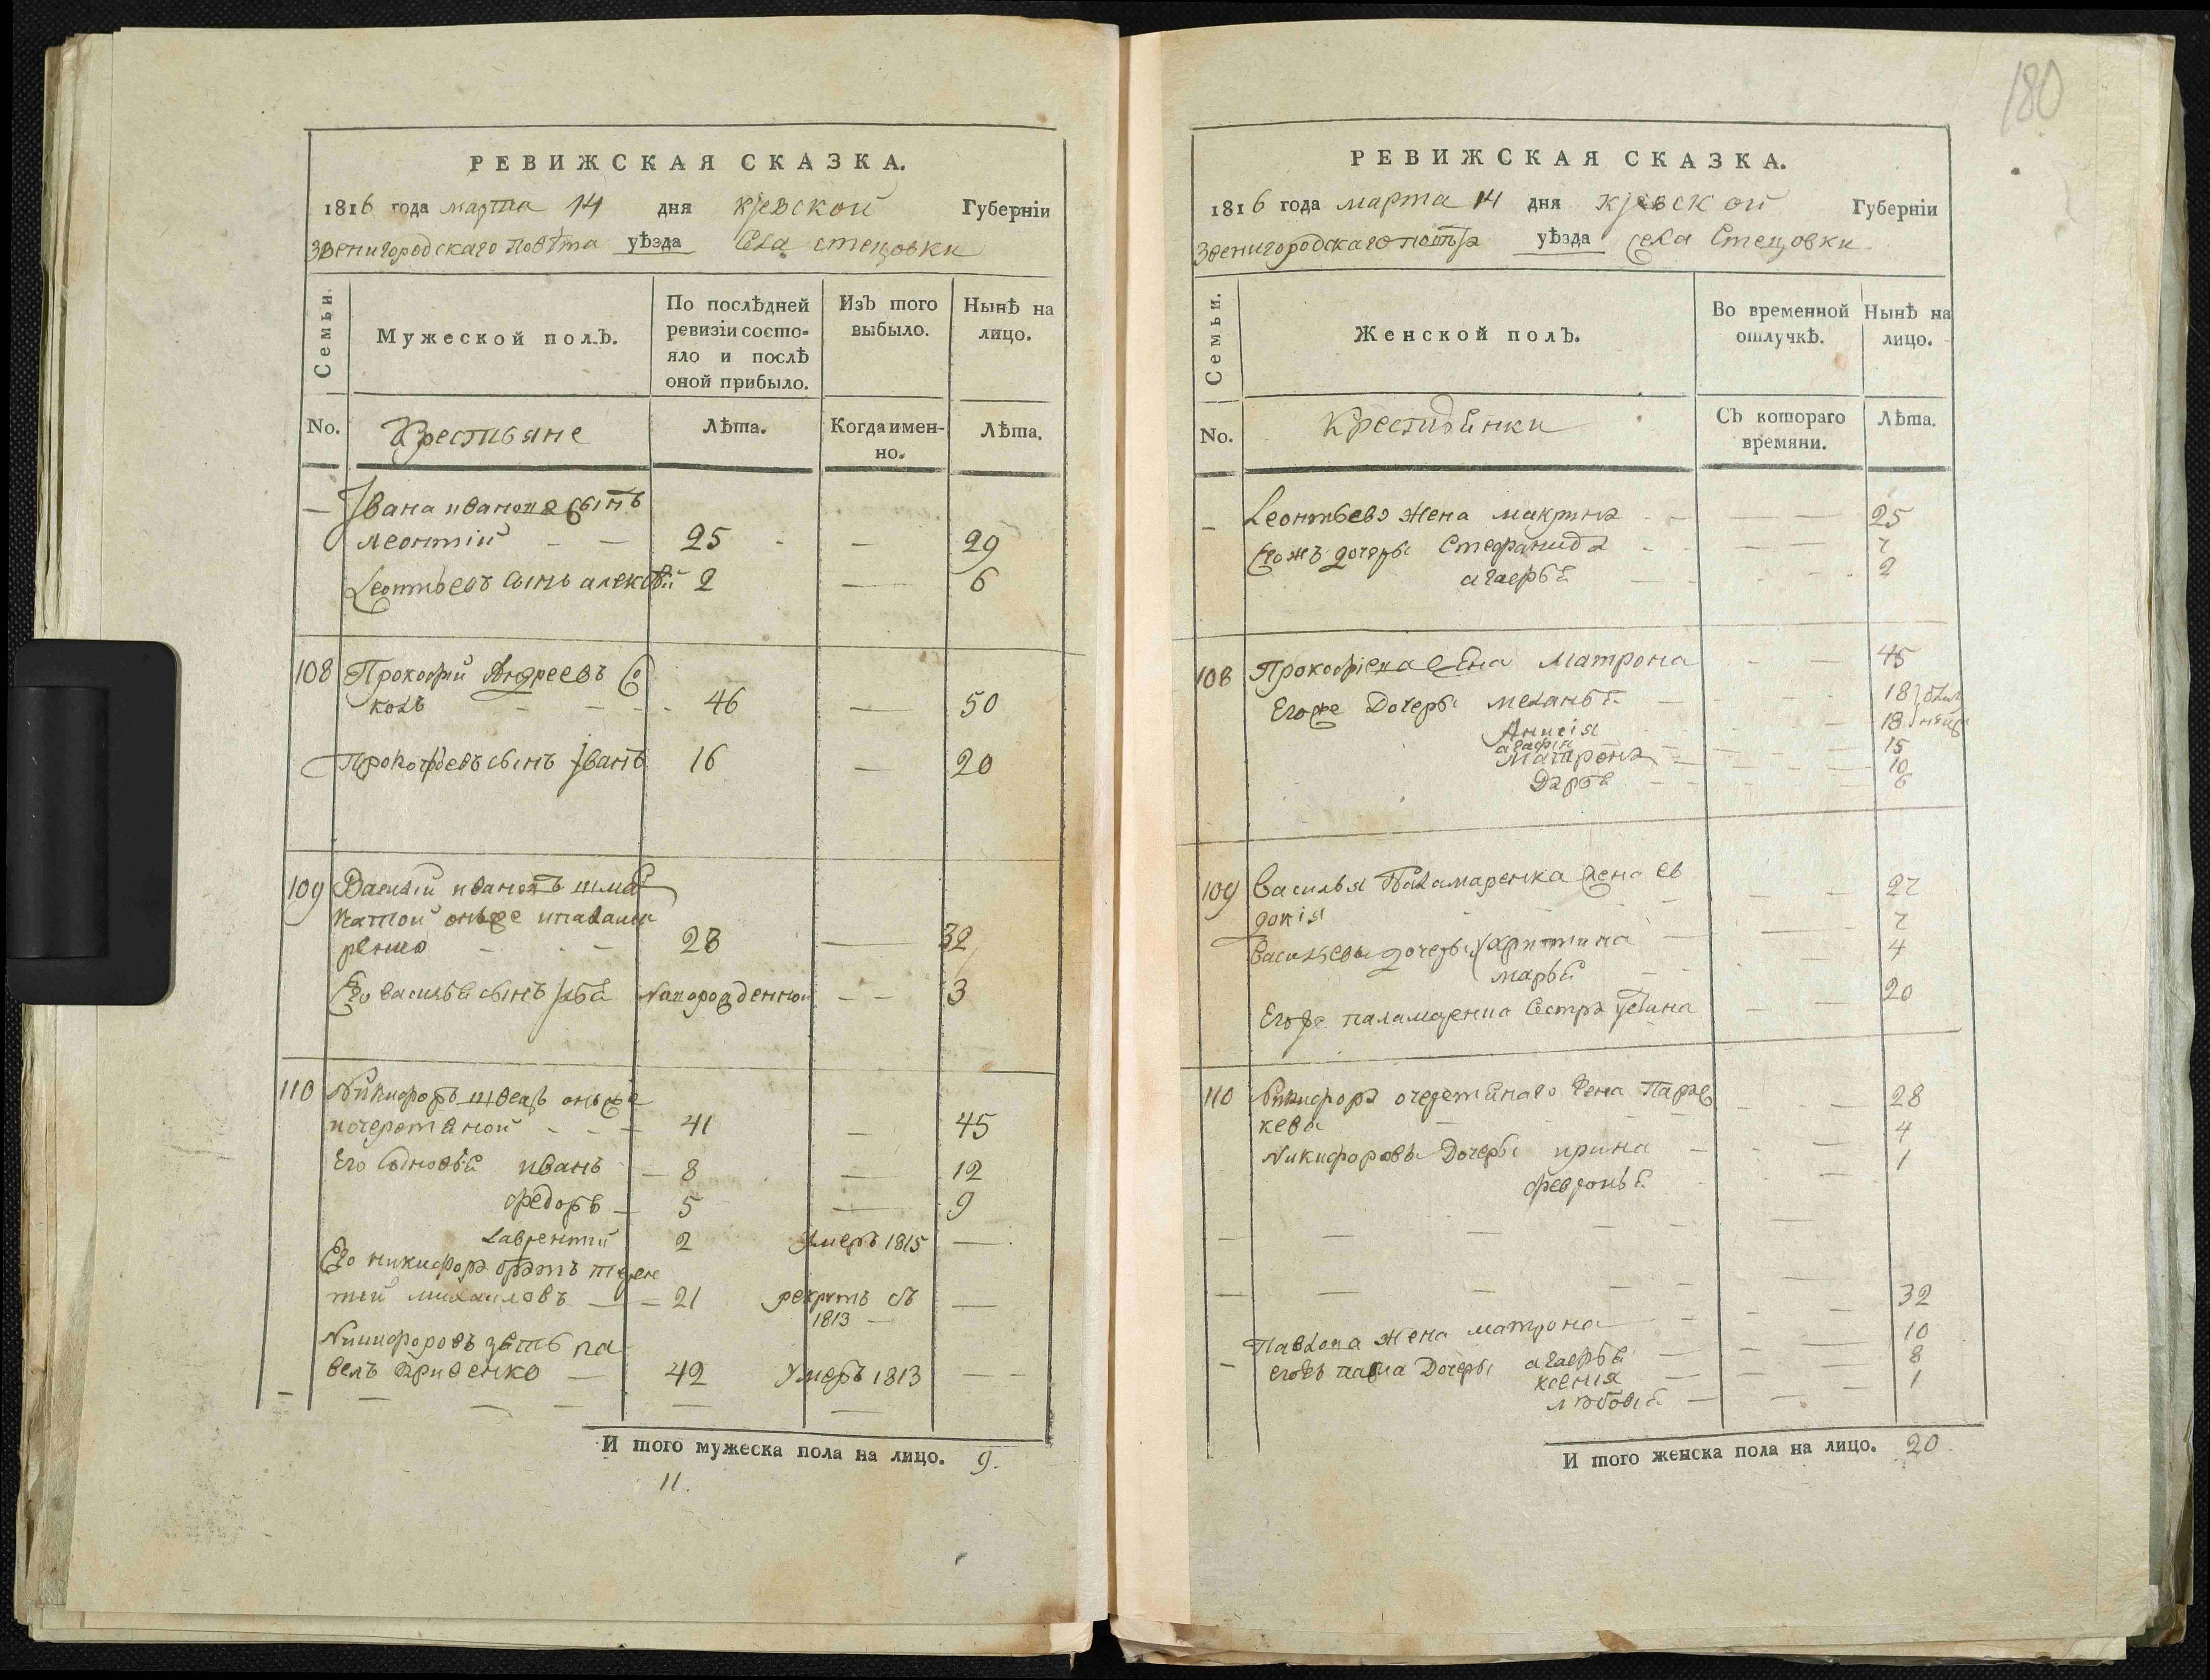 РЕВИЖСКАЯ СКАЗКА.
1816 года марта 14 дня кјевской Губерніи
Звенигородскаго повѣта уѣзда Села стецовки
Семьи.
Мужеской полЪ.
По послѣдней ревизіи состояло и послѣ оной прибыло.
ИзЪ того выбыло.
Нынѣ на лицо.
No.
Крестьяне
Лѣта.
Когда именно.
Лѣта.
— Јвана иванова сынъ
леонтій — — 25 — 29
Леонтьевъ сынъ алексѣй 2 — 6
108 Прокофий Андреевъ Со
колъ — — 46 — 50
Прокофьевъ сынъ Јванъ 16 — 20
109 Василій ивановъ
28 — 32
Его василья сынъ Новорожденной — — 3
110 Никифоръ швецъ онъже
иочеретяной — — — 41 — 45
Его Сыновья иванъ — 8 — 12
федоръ — 5 — 9
Лаврентий 2 Умеръ 1815 —
Его никифора братъ терен
тий михаиловъ — — 21 рекрутъ съ 1813 — —
Никифоровъ зять па
велъ — 42 Умеръ 1813 — —
— — — — — —
И того мужеска пола на лицо. 9.
11.
180
РЕВИЖСКАЯ СКАЗКА.
1816 года марта 14 дня кјевской Губерніи
Звенигородского уѣзда села Стецовки
Семьи.
Женской полЪ.
Во временной отлучкѣ.
Нынѣ на лицо.
No.
Крестьянки
СЪ котораго времяни.
Лѣта.
— Леонтьева Жена макрина — — 25
Егожъ дочеры Стефанида — — 7
агаерья — 2
108 Прокофіева Жена Матрона — — 45
Егоже Дочеры меланья — 18
Анисія — 18
агафия — 15
Матрона — 10
Дарья — — 6
109 Василья Паламаренка жена ев — — 27
докія
Васильевы дочеры харитина — 7
марья — 4
Егоже паламаренка Сестра устина — 20
110 Никифора очеретянаго жена Парас — 28
кева
Никифоровы Дочеры ирина — 4
февронья 1
— — — — — —
— — — — — —
— Павлова жена матрона — — 32
Егожъ павла Дочеры агаерья — 10
ксения — 8
любовія — 1
И того женска пола на лицо. 20.